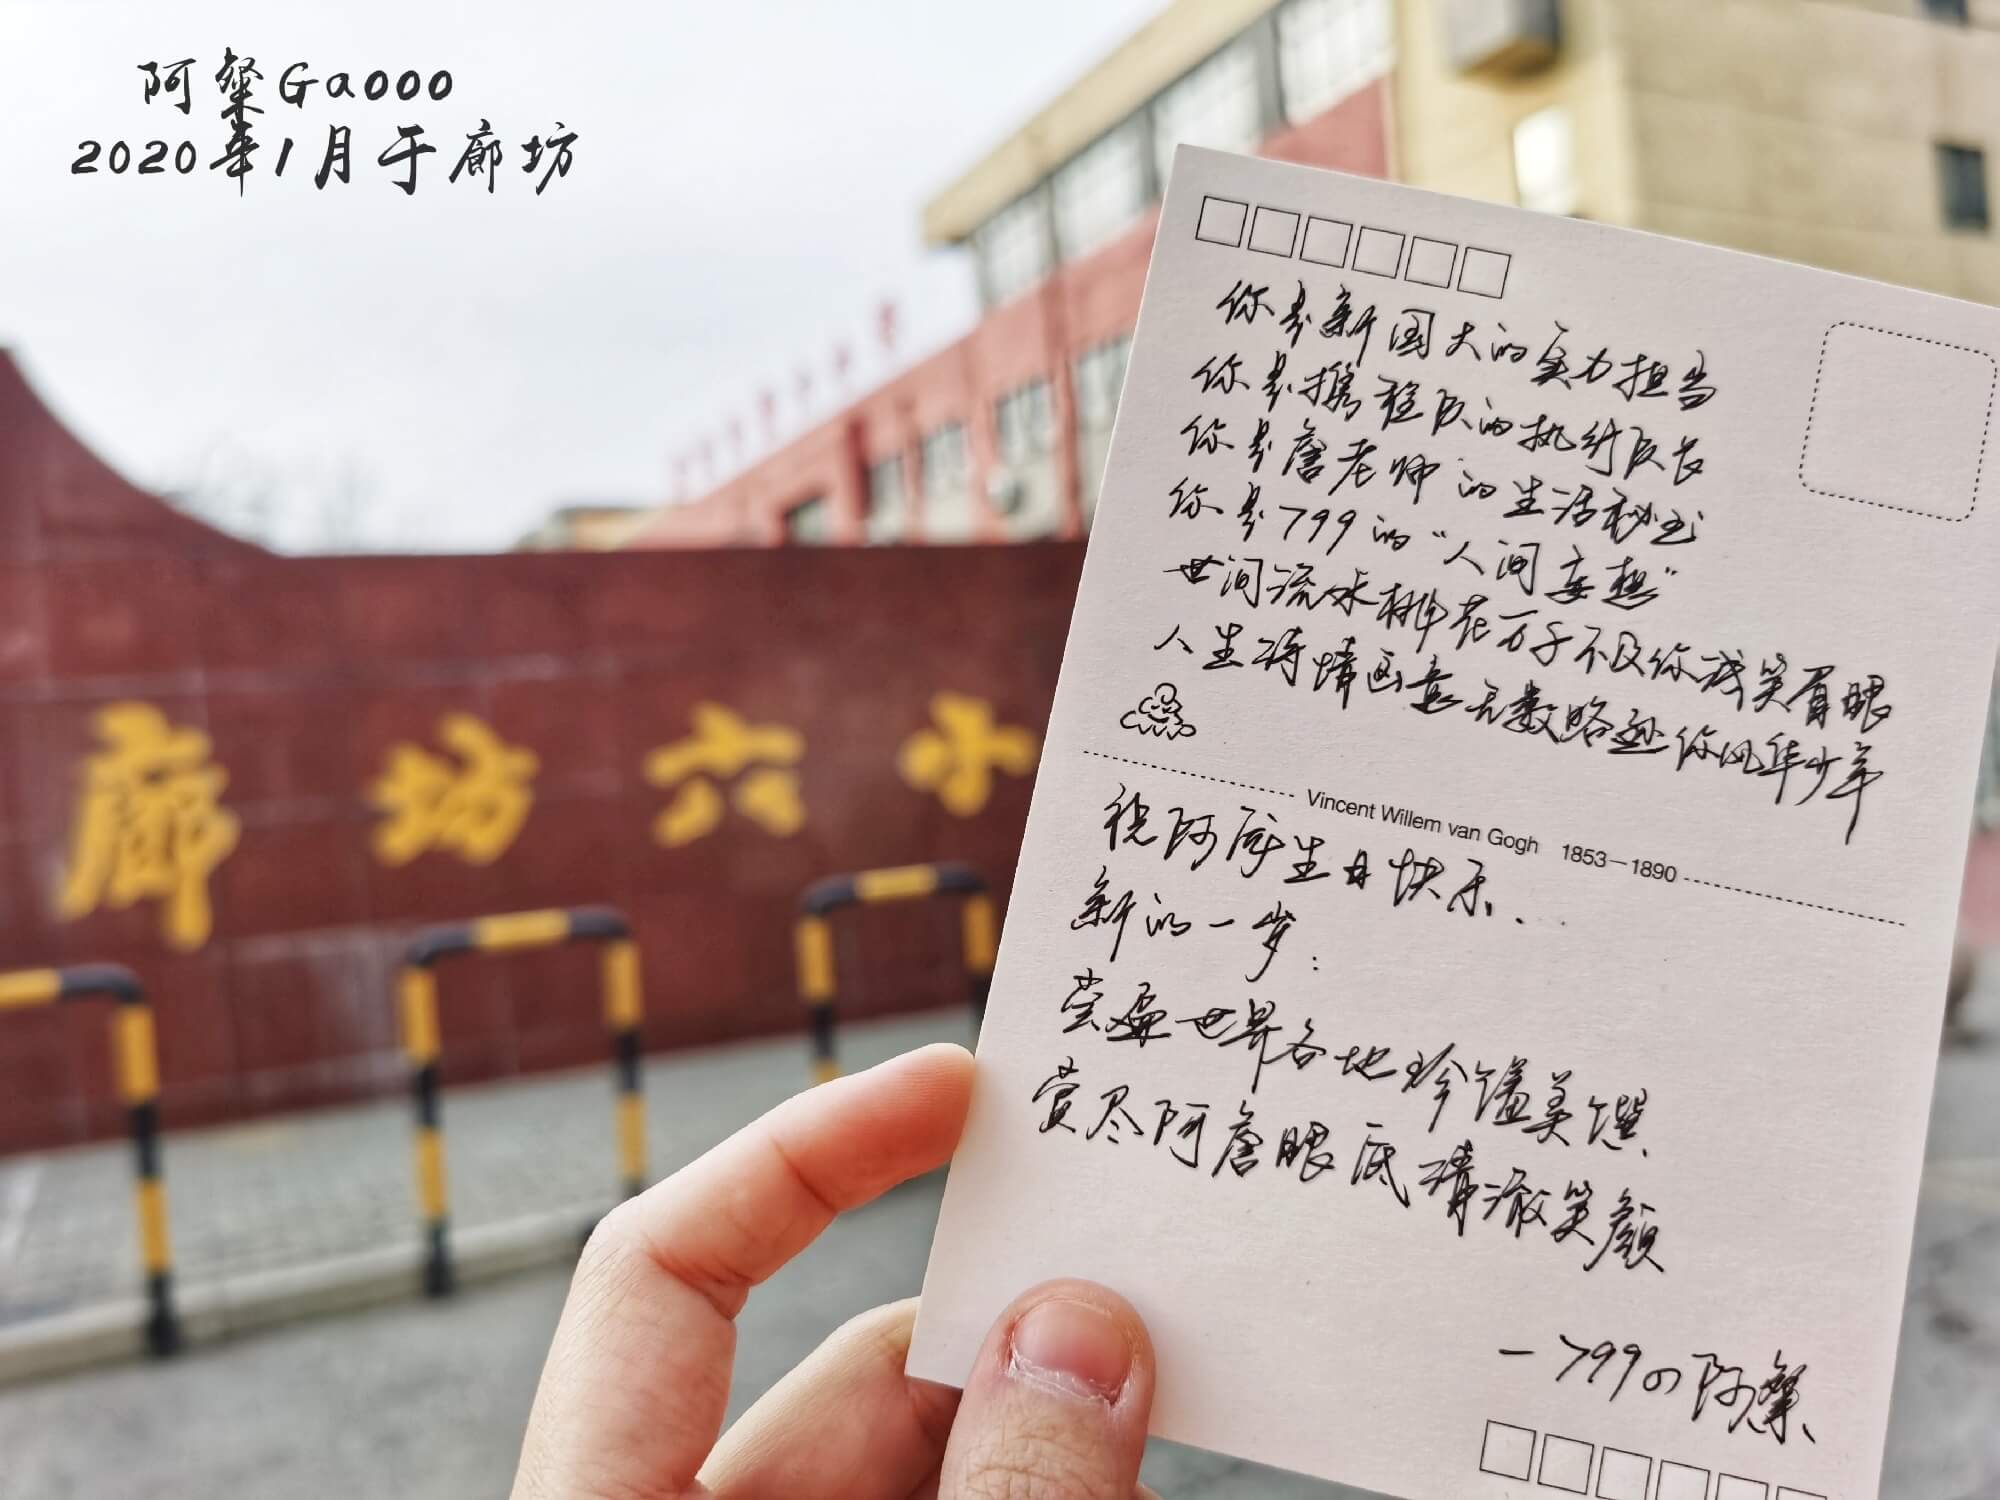 阿粲Gaooo
2020年1月于廊坊
廊坊六小
你是新国大的实力担当
你是携程队的执行队长
你是詹老师的生活秘书
你是799的“人间妄想”
世间流水桃花万千不及你浅笑眉眼
人生诗情画意无数略逊你风华少年
Vincent Willem van Gogh 1853—1890
祝阿庞生日快乐..
新的一岁:
尝遍世界各地珍馐美馔、
赏尽阿詹眼底清澈笑颜
—799の阿粲、